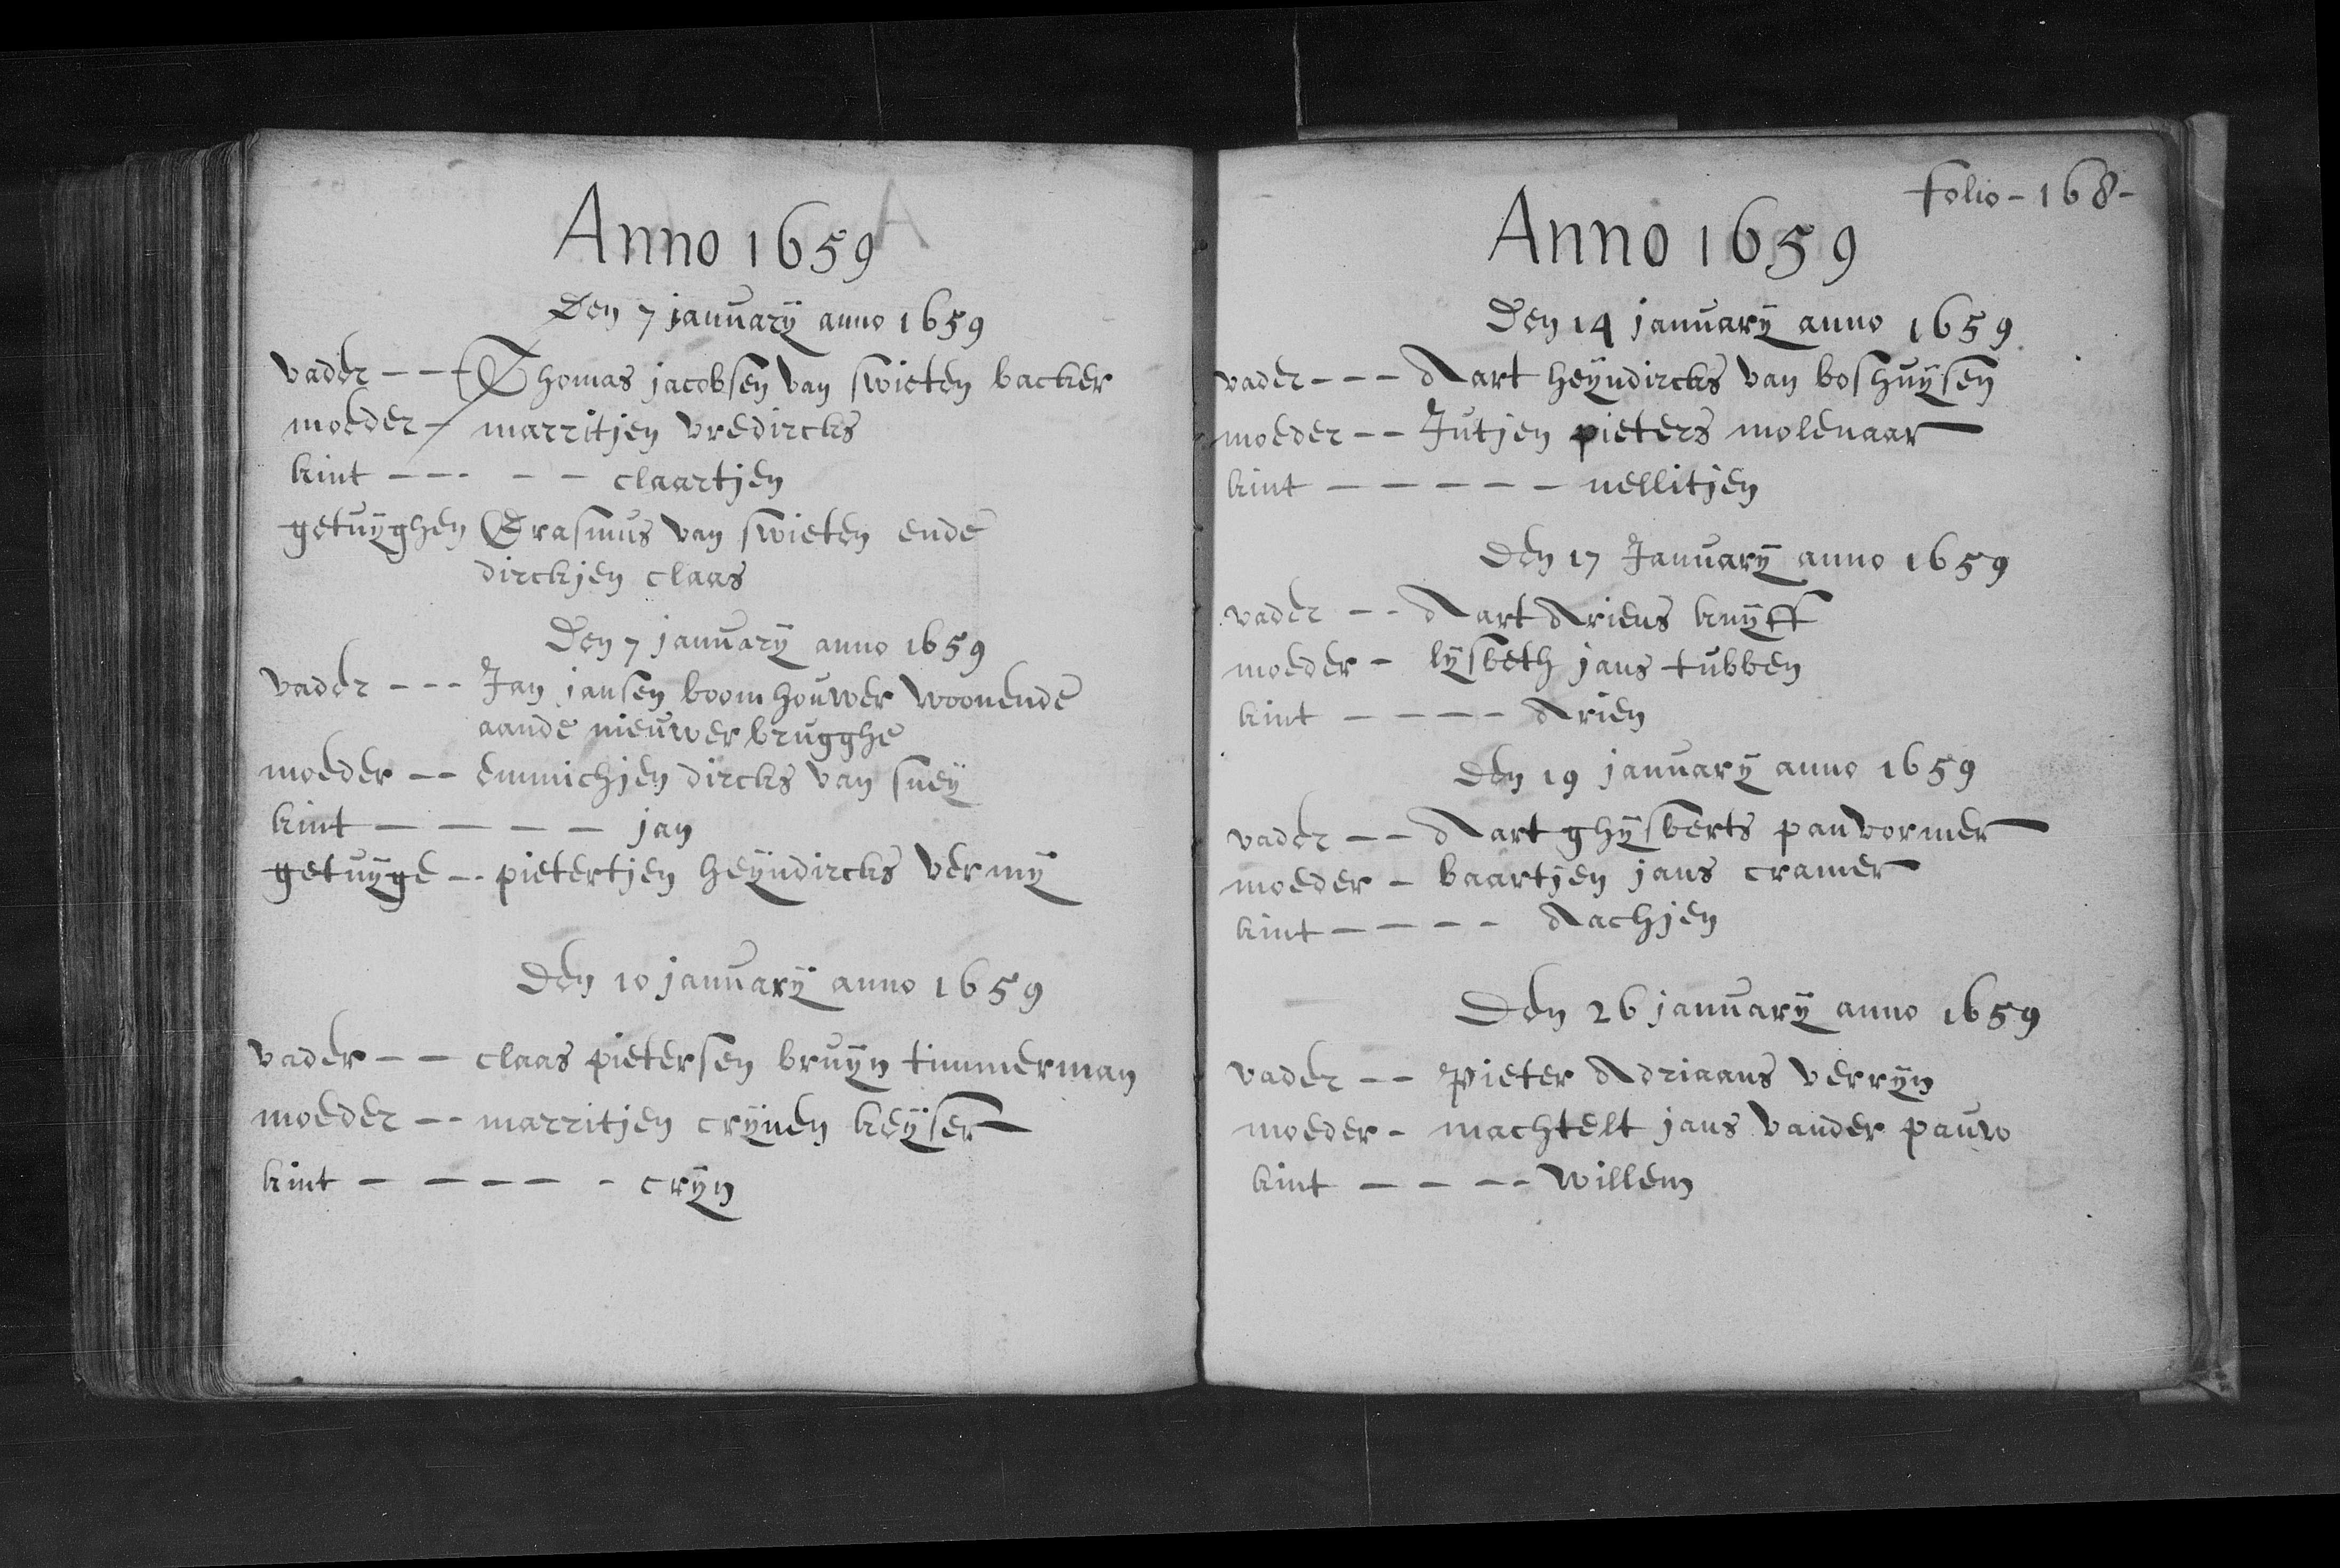 Anno 1659
Den 7 januarÿ anno 1659
vader - - - Thomas jacobsen van swieten backer
moeder - marritjen vredircks
kint - - - - - claartjen
getuÿghen Erasmus van swieten ende
dirckjen claas
Den 7 januarÿ anno 1659
vader - - - Jan jansen boomhouwer woonende
aande nieuwerbrugghe
moeder - - emmichjen dircks van sneÿ
kint - - - - jan
getuÿge - - pietertjen heÿndircks vermÿ
Den 10 januarÿ anno 1659
vader - - claas pietersen bruÿn timmerman
moeder - - marritjen crÿnen keÿser
kint - - - - - crÿn
folio - 168 -
Anno 1659
Den 14 januarÿ anno 1659
vader - - - Aart heÿndircks van boshuÿsen
moeder - - Jutjen pieters molenaar
kint - - - - - nellitjen
Den 17 Januarÿ anno 1659
vader - - Aart Ariens knÿff
moeder - lÿsbeth jans tubben
kint - - - - Arien
Den 19 januarÿ anno 1659
vader - - Aart ghÿsberts panvormer
moeder - baartjen jans cramer
kint - - - - Aachjen
Den 26 januarÿ anno 1659
vader - - Pieter Adriaans verrÿn
moeder - machtelt jans vander pauw
kint - - - - willem